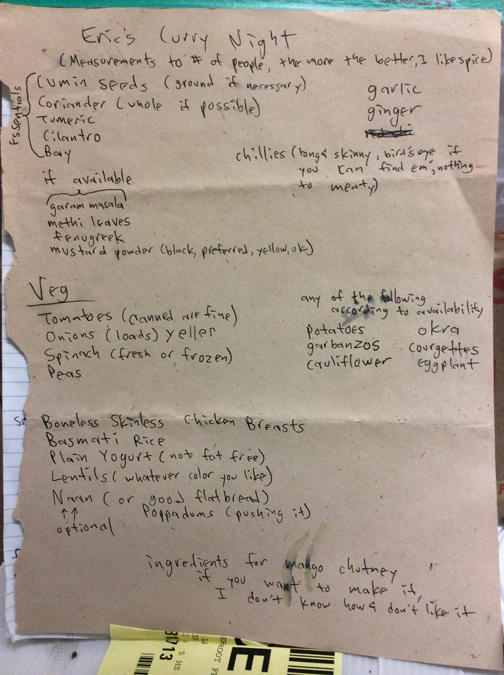 Eric's Curry Night
(Measurements to # of people, the more the better, I like spice)
Essentials
Cumin seeds (ground if necessary)
Coriander (whole if possible)
Tumeric
Cilantro
Bay
garlic
ginger
chillies (long & skinny, bird's eye if
you can find em', nothing
to meaty)
if available
garam masala
methi leaves
fenugreek
mustard powder (black, preferred, yellow, ok)
Veg
Tomatoes (canned are fine)
Onions (loads) yeller
Spinach (fresh or frozen)
Peas
any of the following
according to availability
potatoes
garbanzos
cauliflower
okra
courgettes
eggplant
Boneless Skinless Chicken Breasts
Basmati Rice
Plain Yogurt (not fat free)
Lentils (whatever color you like)
Naan (or good flatbread)
Poppadums (pushing it)
↑↑
optional
ingredients for mango chutney
if you want to make it,
I don't know how & don't like it